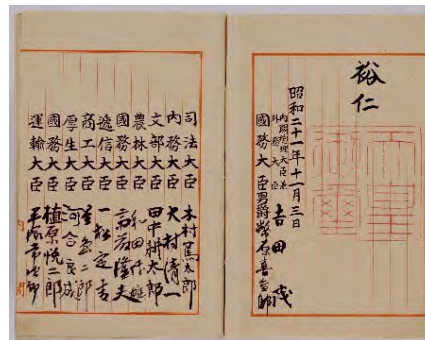 裕仁
昭和二十一年十一月三日
内閣総理大臣兼
外務大臣 吉田茂
國務大臣 男爵幣原喜重郎
司法大臣 木村篤太郎
内務大臣 大村清一
文部大臣 田中耕太郎
農林大臣 和田博雄
國務大臣 斎藤隆夫
逓信大臣 一松定吉
商工大臣 星島二郎
厚生大臣 河合良成
國務大臣 植原悦二郎
運輸大臣 平塚常次郎
内閣